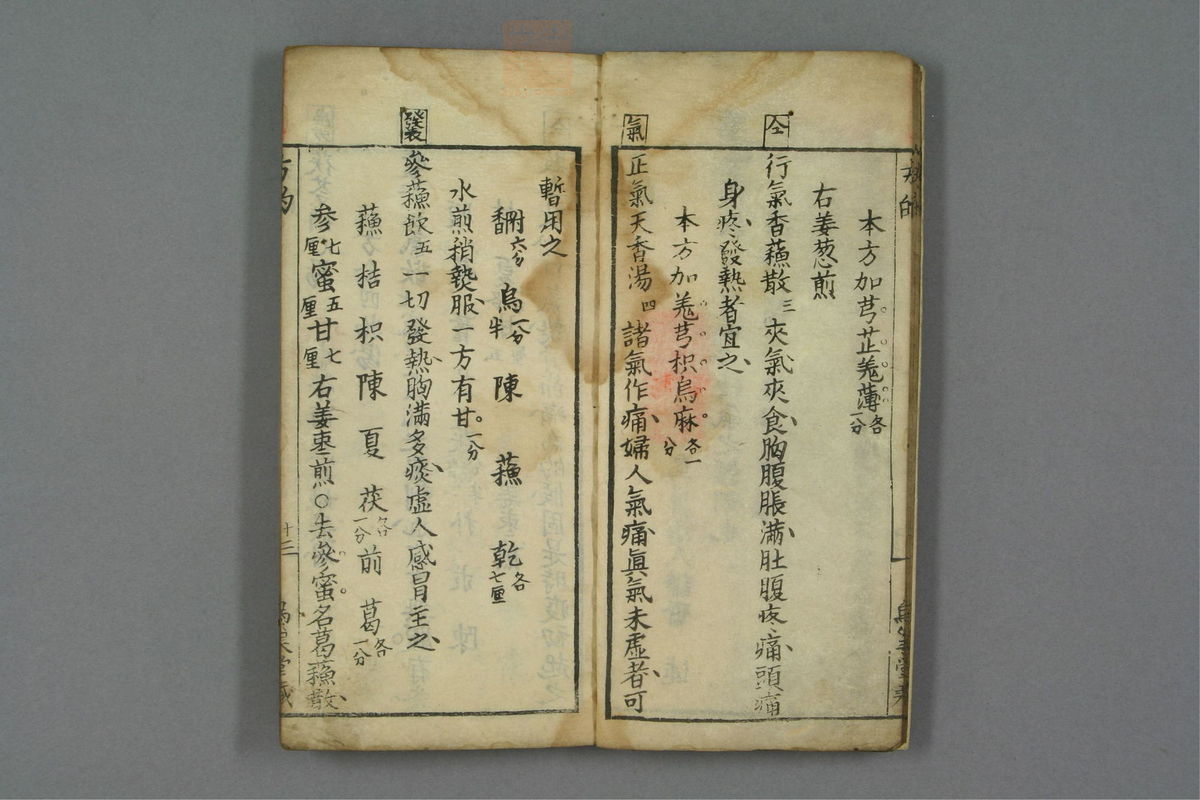 本方加芎芷羗薄各一分
右姜葱煎
仝 行氣香蘓散三 夾氣夾食胸腹脹滿肚腹疼痛頭痛
身疼發熱者宜之
本方加羗芎枳烏麻各一分
氣 正氣天香湯四 諸氣作痛婦人氣痛眞氣未虛者可
暫用之
香附六分 烏一分半 陳 蘓 乾各七厘
水煎稍熱服一方有甘一分
發表 參蘓飲五 一切發熱胸滿多痰虛人感冒主之
蘓 桔 枳 陳 夏 茯各一分 前 葛各一分
参七厘 蜜五厘 甘七厘 右姜枣煎○去參蜜名葛蘓散
十三